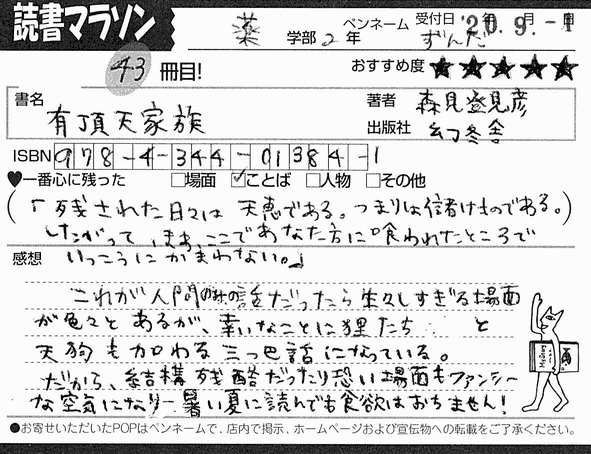 読書マラソン
薬 学部 2 年
ペンネーム ずんだ
受付日 '20.9.-1
43 冊目!
おすすめ度 ★★★★★
書名 有頂天家族
著者 森見登美彦
出版社 幻冬舎
ISBN 978-4-344-01384-1
♥一番心に残った □場面 ☑ことば □人物 □その他
(「残された日々は天恵である。つまりは儲けものである。)
したがって、まあ、ここであなた方に喰われたところで
いっこうにかまわない。」
感想
これが人間のみの話だったら生々しすぎる場面
が色々とあるが、幸いなことに狸たち と
天狗も加わる三つ巴話になっている。
だから、結構残酷だったり恐い場面もファンシー
な空気になり一暑い夏に読んでも食欲はおちません!
●お寄せいただいたPOPはペンネームで、店内で掲示、ホームページおよび宣伝物への転載をご了承ください。